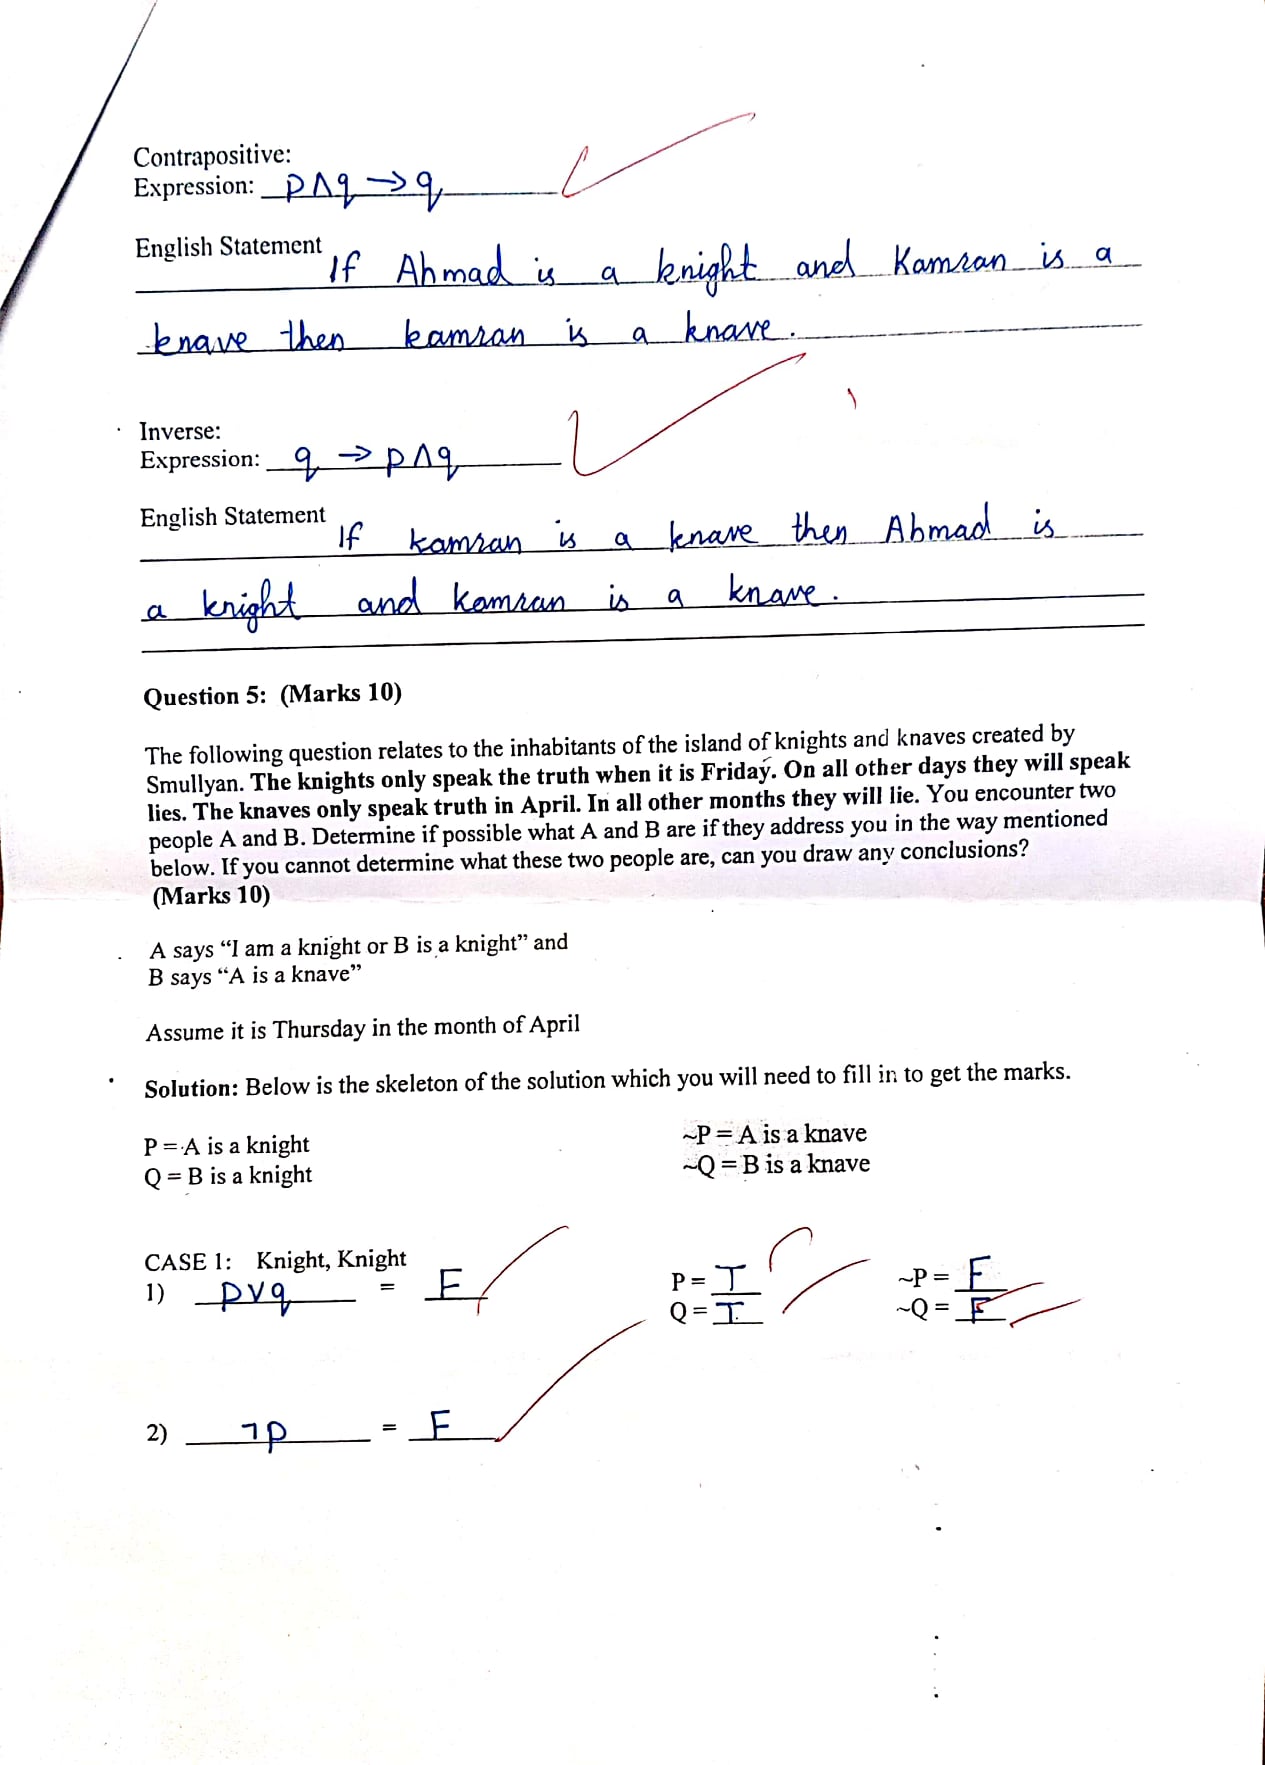 Contrapositive:
Expression: p∧q → q
English Statement If Ahmad is a knight and Kamran is a
knave then kamran is a knave.
Inverse:
Expression: q → p∧q
English Statement If kamran is a knave then Ahmad is
a knight and kamran is a knave.
Question 5: (Marks 10)
The following question relates to the inhabitants of the island of knights and knaves created by
Smullyan. The knights only speak the truth when it is Friday. On all other days they will speak
lies. The knaves only speak truth in April. In all other months they will lie. You encounter two
people A and B. Determine if possible what A and B are if they address you in the way mentioned
below. If you cannot determine what these two people are, can you draw any conclusions?
(Marks 10)
A says “I am a knight or B is a knight” and
B says “A is a knave”
Assume it is Thursday in the month of April
Solution: Below is the skeleton of the solution which you will need to fill in to get the marks.
P = A is a knight ~P = A is a knave
Q = B is a knight ~Q = B is a knave
CASE 1: Knight, Knight
1) p∨q = F P = T ~P = F
Q = T ~Q = F
2) ¬p = F